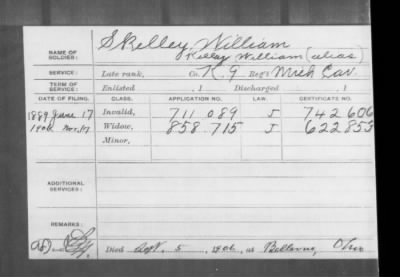 Skelley, William
NAME OF SOLDIER: Kelley William (alias)
SERVICE: Late rank, Co. K. 9 Reg't Mich Cav.
TERM OF SERVICE: Enlisted , 1 Discharged , 1
DATE OF FILING. CLASS. APPLICATION NO. LAW. CERTIFICATE NO.
1889 June 17 Invalid, 711 089 J 742 606
1906 Nov. 17 Widow, 858 715 J 622 855
Minor,
ADDITIONAL SERVICES:
REMARKS:
Died Sept. 5, 1906, at Bellevue, Ohio